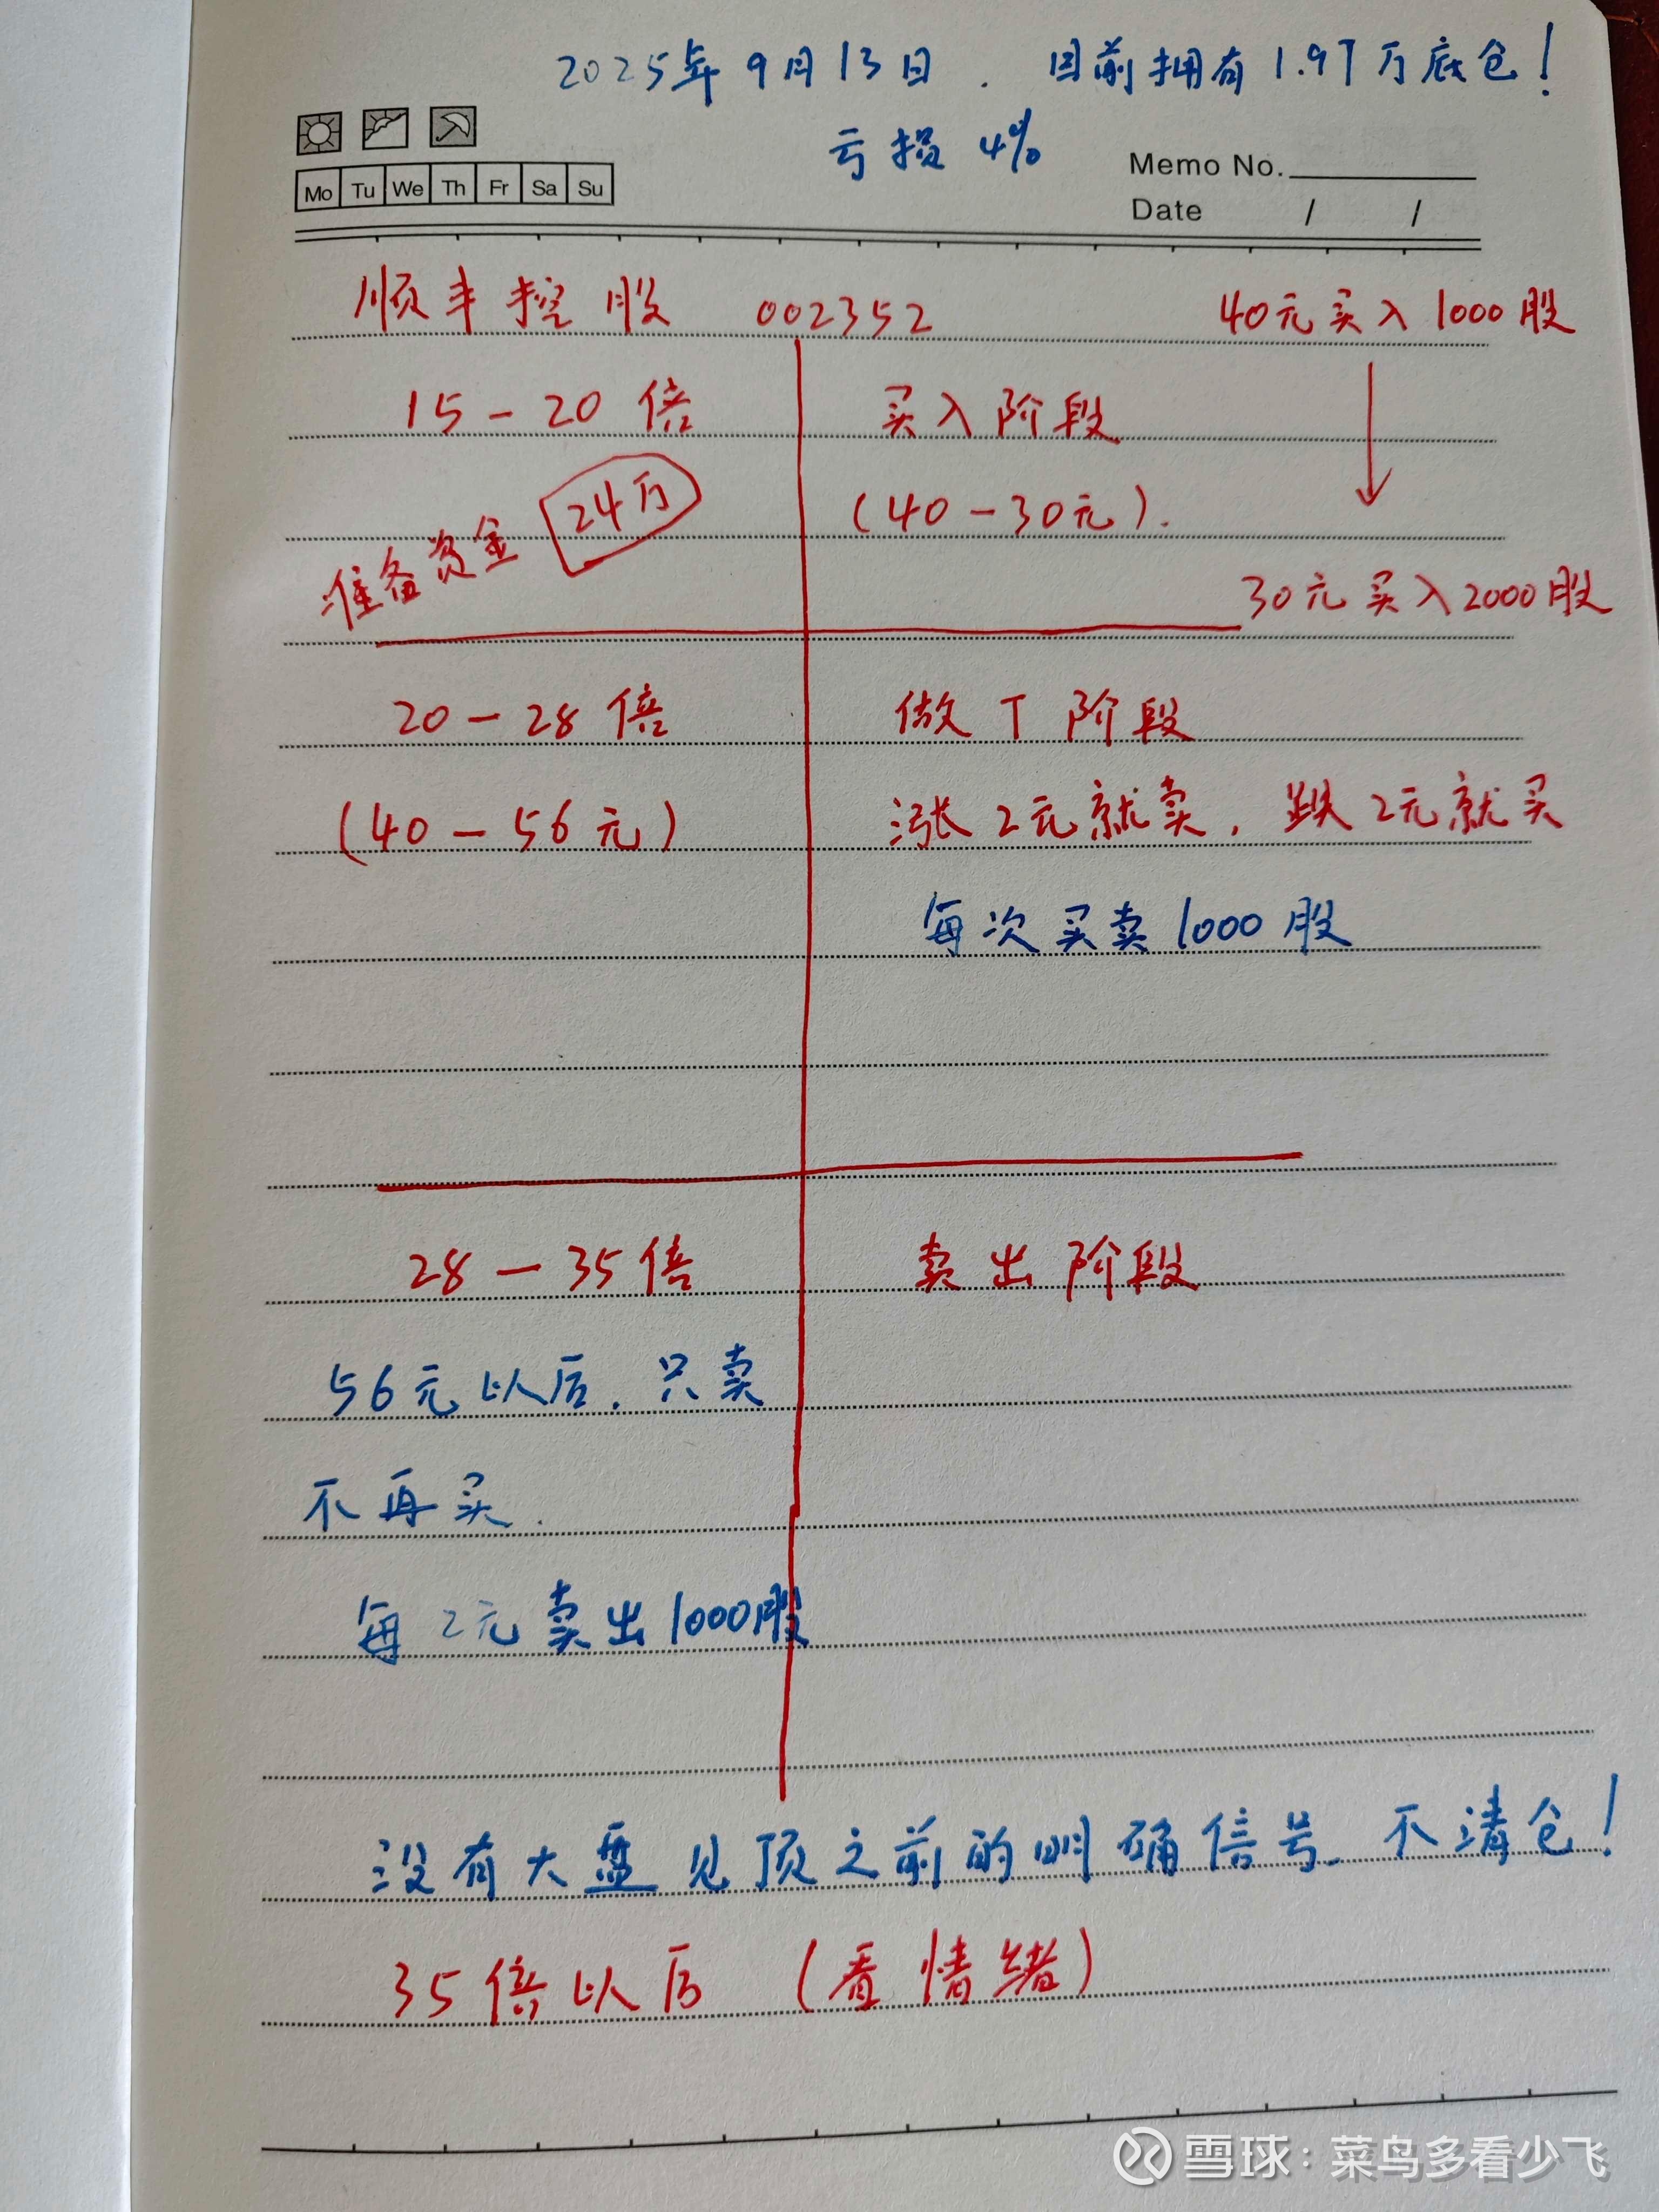 2025年9月13日. 目前拥有1.97万底仓!
亏损 4%
Memo No.
Mo Tu We Th Fr Sa Su
Date / /
顺丰控股 002352 40元买入1000股
15-20倍 买入阶段
准备资金 24万 (40-30元).
30元买入2000股
20-28倍 做T阶段
(40-56元) 涨2元就卖, 跌2元就买
每次买卖1000股
28-35倍 卖出阶段
56元以后, 只卖
不再买.
每2元卖出1000股
没有大盘见顶之前的明确信号, 不清仓!
35倍以后 (看情绪)
雪球: 菜鸟多看少飞